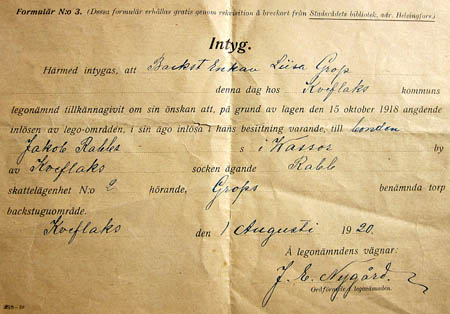 Formulär N:o 3. (Dessa formulär erhållas gratis genom rekvisition å brevkort från Statsrådets bibliotek, adr. Helsingfors)
Intyg.
Härmed intygas, att Backst Enkan Liisa Grop
denna dag hos Kveflaks kommuns
legonämnd tillkännagivit om sin önskan att, på grund av lagen den 15 oktober 1918 angående
inlösen av lego-områden, i sin ägo inlösa i hans besittning varande, till bonden
Jakob Rabbs s i Kassor by
av Kveflaks socken ägande Rabb
skattelägenhet N:o 2 hörande, Grops benämnda torp
backstuguområde.
Kveflaks den 1 Augusti 1920.
Å legonämndens vägnar:
J. E. Nygård.
Ordförande i legonämnden.